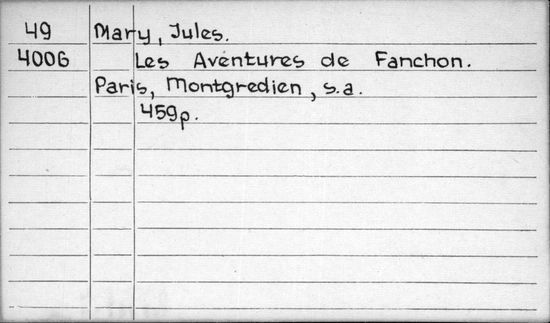 49 Mary, Jules.
4006 Les Aventures de Fanchon.
Paris, Montgredien, s.a.
459p.